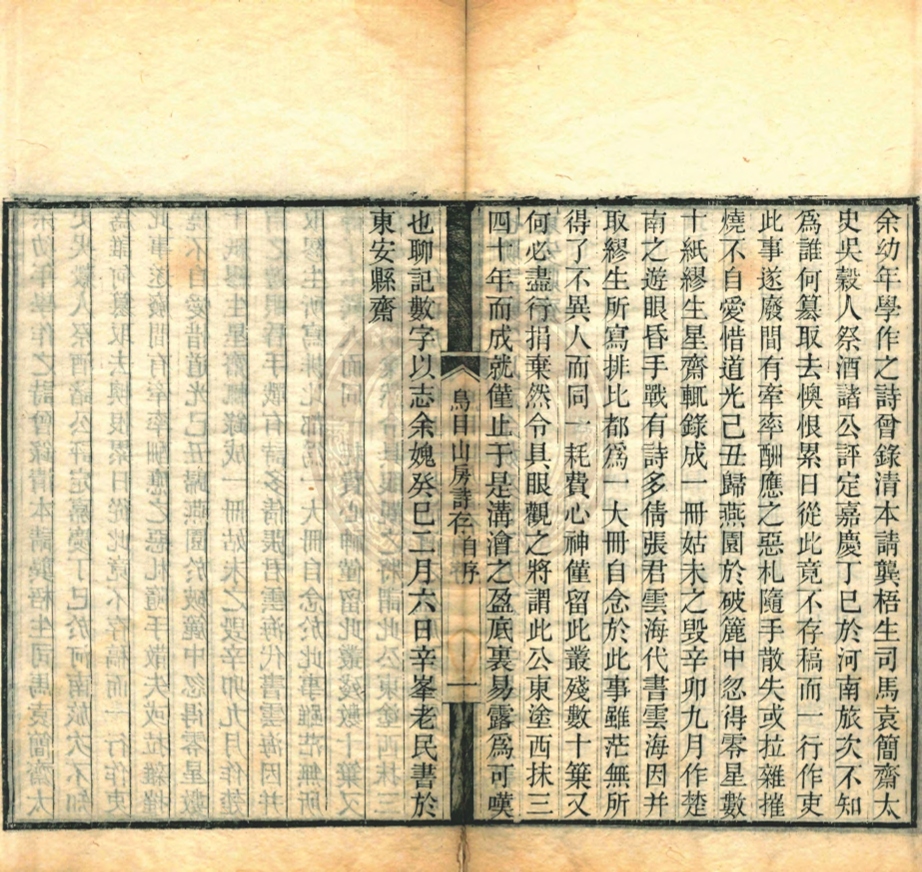 余幼年學作之詩曾錄清本請龔梧生司馬袁簡齋太
史吳穀人祭酒諸公評定嘉慶丁巳於河南旅次不知
爲誰何篡取去懊恨累日從此竟不存稿而一行作吏
此事遂廢間有牽率酬應之惡札隨手散失或拉雜摧
燒不自愛惜道光己丑歸燕園於破簏中忽得零星數
十紙繆生星齋輒錄成一冊姑未之毀辛卯九月作楚
南之遊眼昏手戰有詩多倩張君雲海代書雲海因并
取繆生所寫排比都爲一大冊自念於此事雖茫無所
得了不異人而同一耗費心神僅留此叢殘數十葉又
何必盡行捐棄然令具眼觀之將謂此公東塗西抹三
四十年而成就僅止于是溝澮之盈底裏易露爲可嘆
烏目山房詩存自序
一
也聊記數字以志余媿癸巳二月六日辛峯老民書於
東安縣齋